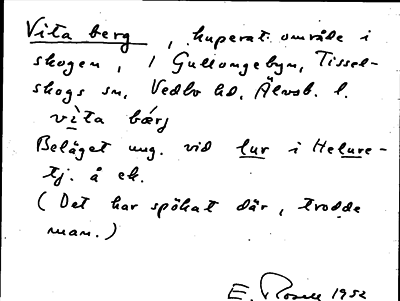 Vita berg, kuperat område i
skogen, i Gullungebyn, Tissel-
skogs sn, Vedbo hd, Älvsb. l.
vìta bárj
Beläget ung. vid lur i Helure-
tj. å ek.
(Det har spökat där, trodde
man.)
E. Rosell 1952